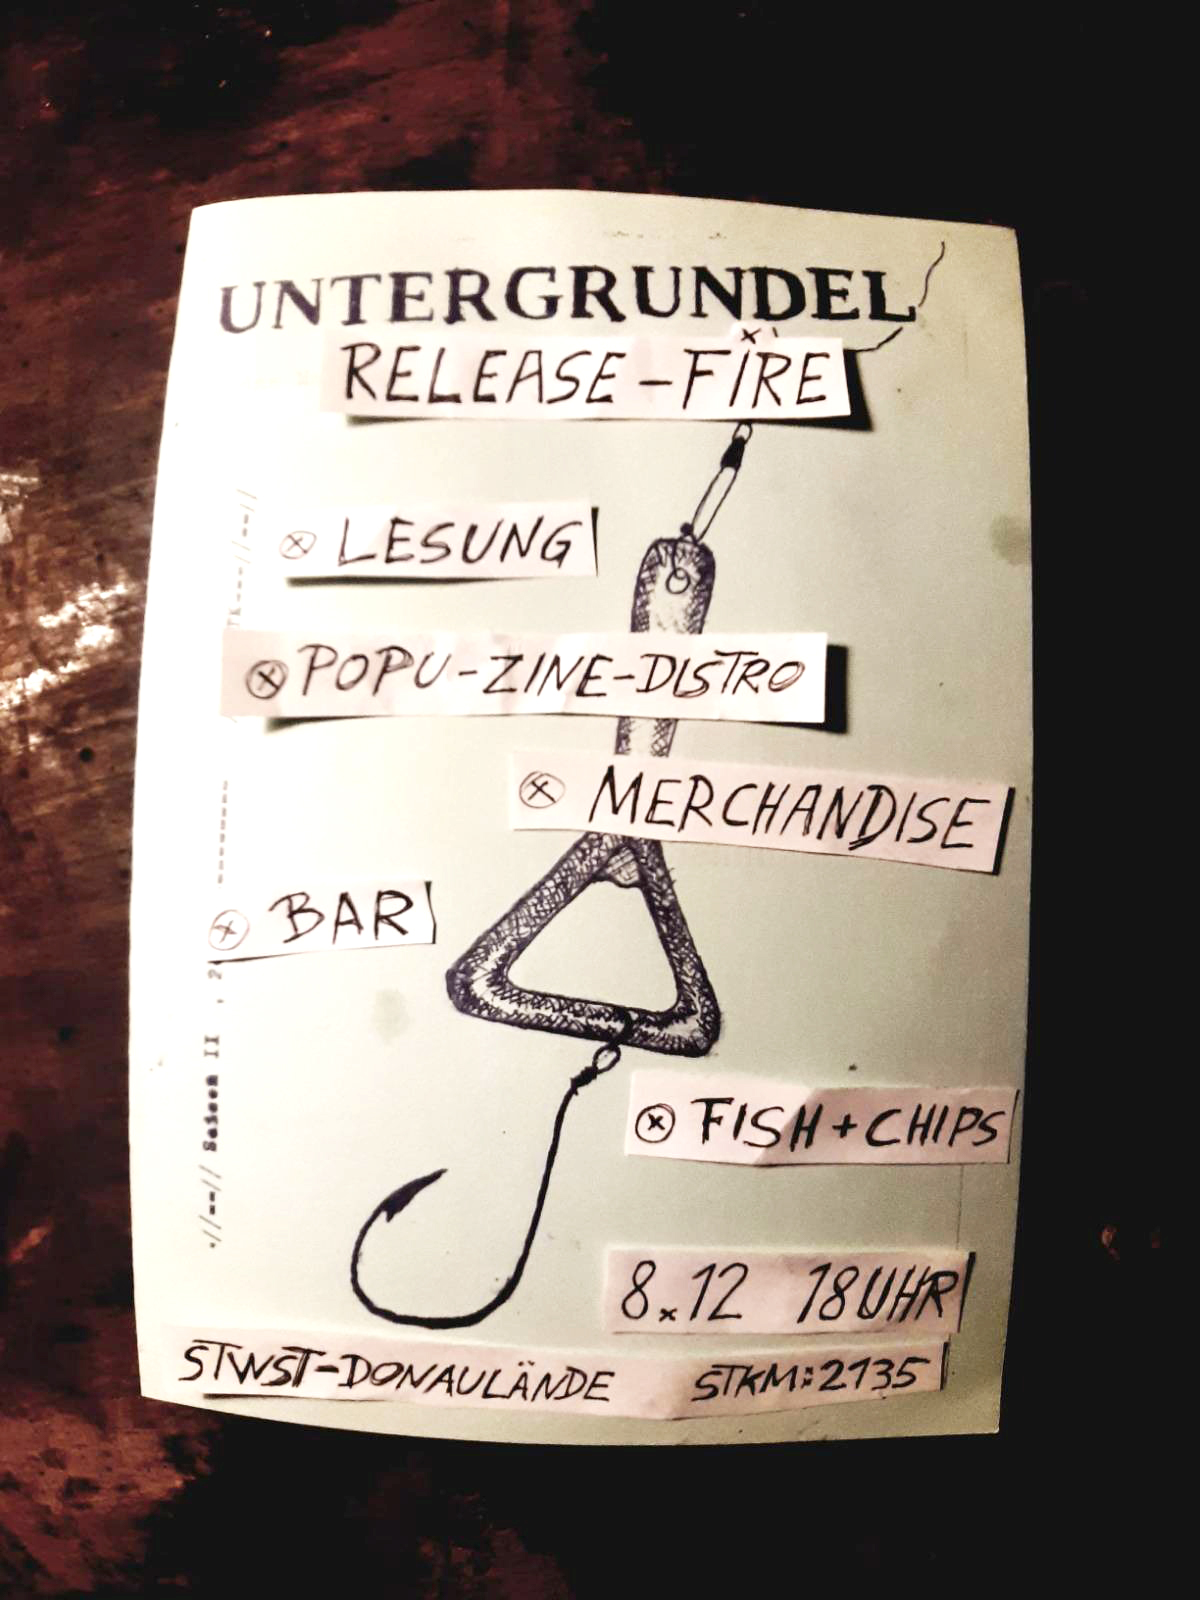 UNTERGRUNDEL
RELEASE-FIRE
LESUNG
POPU-ZINE-DISTRO
MERCHANDISE
BAR
FISH+CHIPS
8.12 18UHR
STWST-DONAULÄNDE STKM:2135
·//--// Saison II